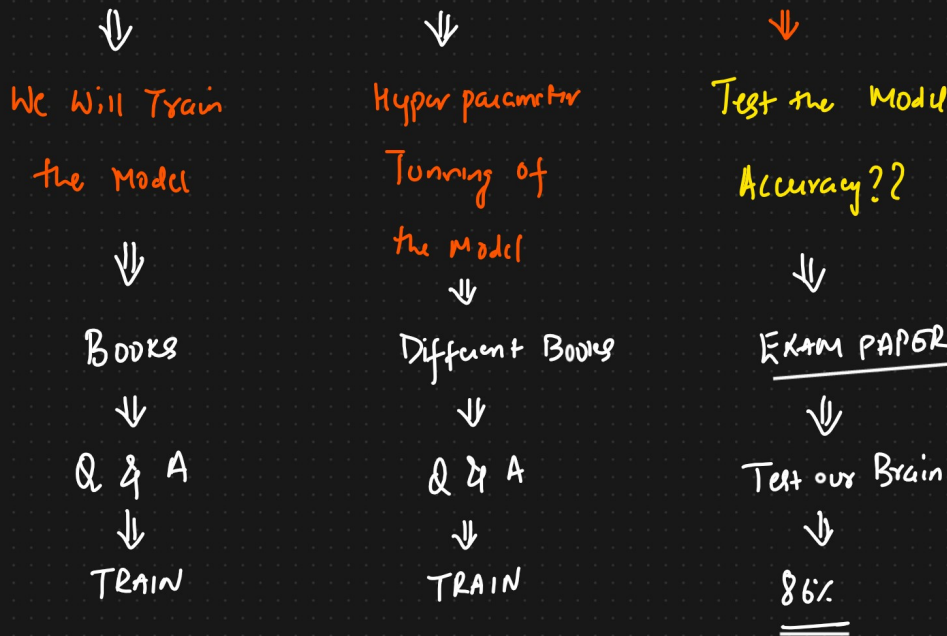 We Will Train
the Model
Books
Q & A
TRAIN
Hyper parameter
Tunning of
the Model
Different Books
Q & A
TRAIN
Test the Model
Accuracy??
EXAM PAPER
Test our Brain
86%